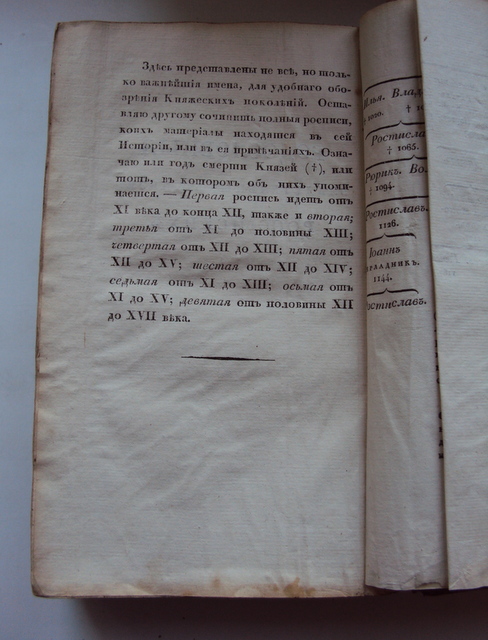 Здѣсь представлены не всѣ, но толь-
ко важнѣйшія имена, для удобнаго обо-
зрѣнія Княжескихъ поколѣній. Оста-
вляю другому сочинить полныя росписи,
коихъ матеріалы находятся въ сей
Исторіи, или въ ея примѣчаніяхъ. Озна-
чаю или годъ смерти Князей (†), или
тотъ, въ которомъ объ нихъ упоми-
нается. — Первая роспись идетъ отъ
XI вѣка до конца XII, также и вторая;
третья отъ XI до половины XIII;
четвертая отъ XII до XIII; пятая отъ
XII до XV; шестая отъ XII до XIV;
седьмая отъ XI до XIII; осьмая отъ
XI до XV; девятая отъ половины XII
до XVII вѣка.
Илья. Влад
† 1020.
Ростисла
† 1065.
Рюрикъ. Во
† 1094.
Ростиславъ.
1126.
Іоаннъ
1144.
Ростиславъ.